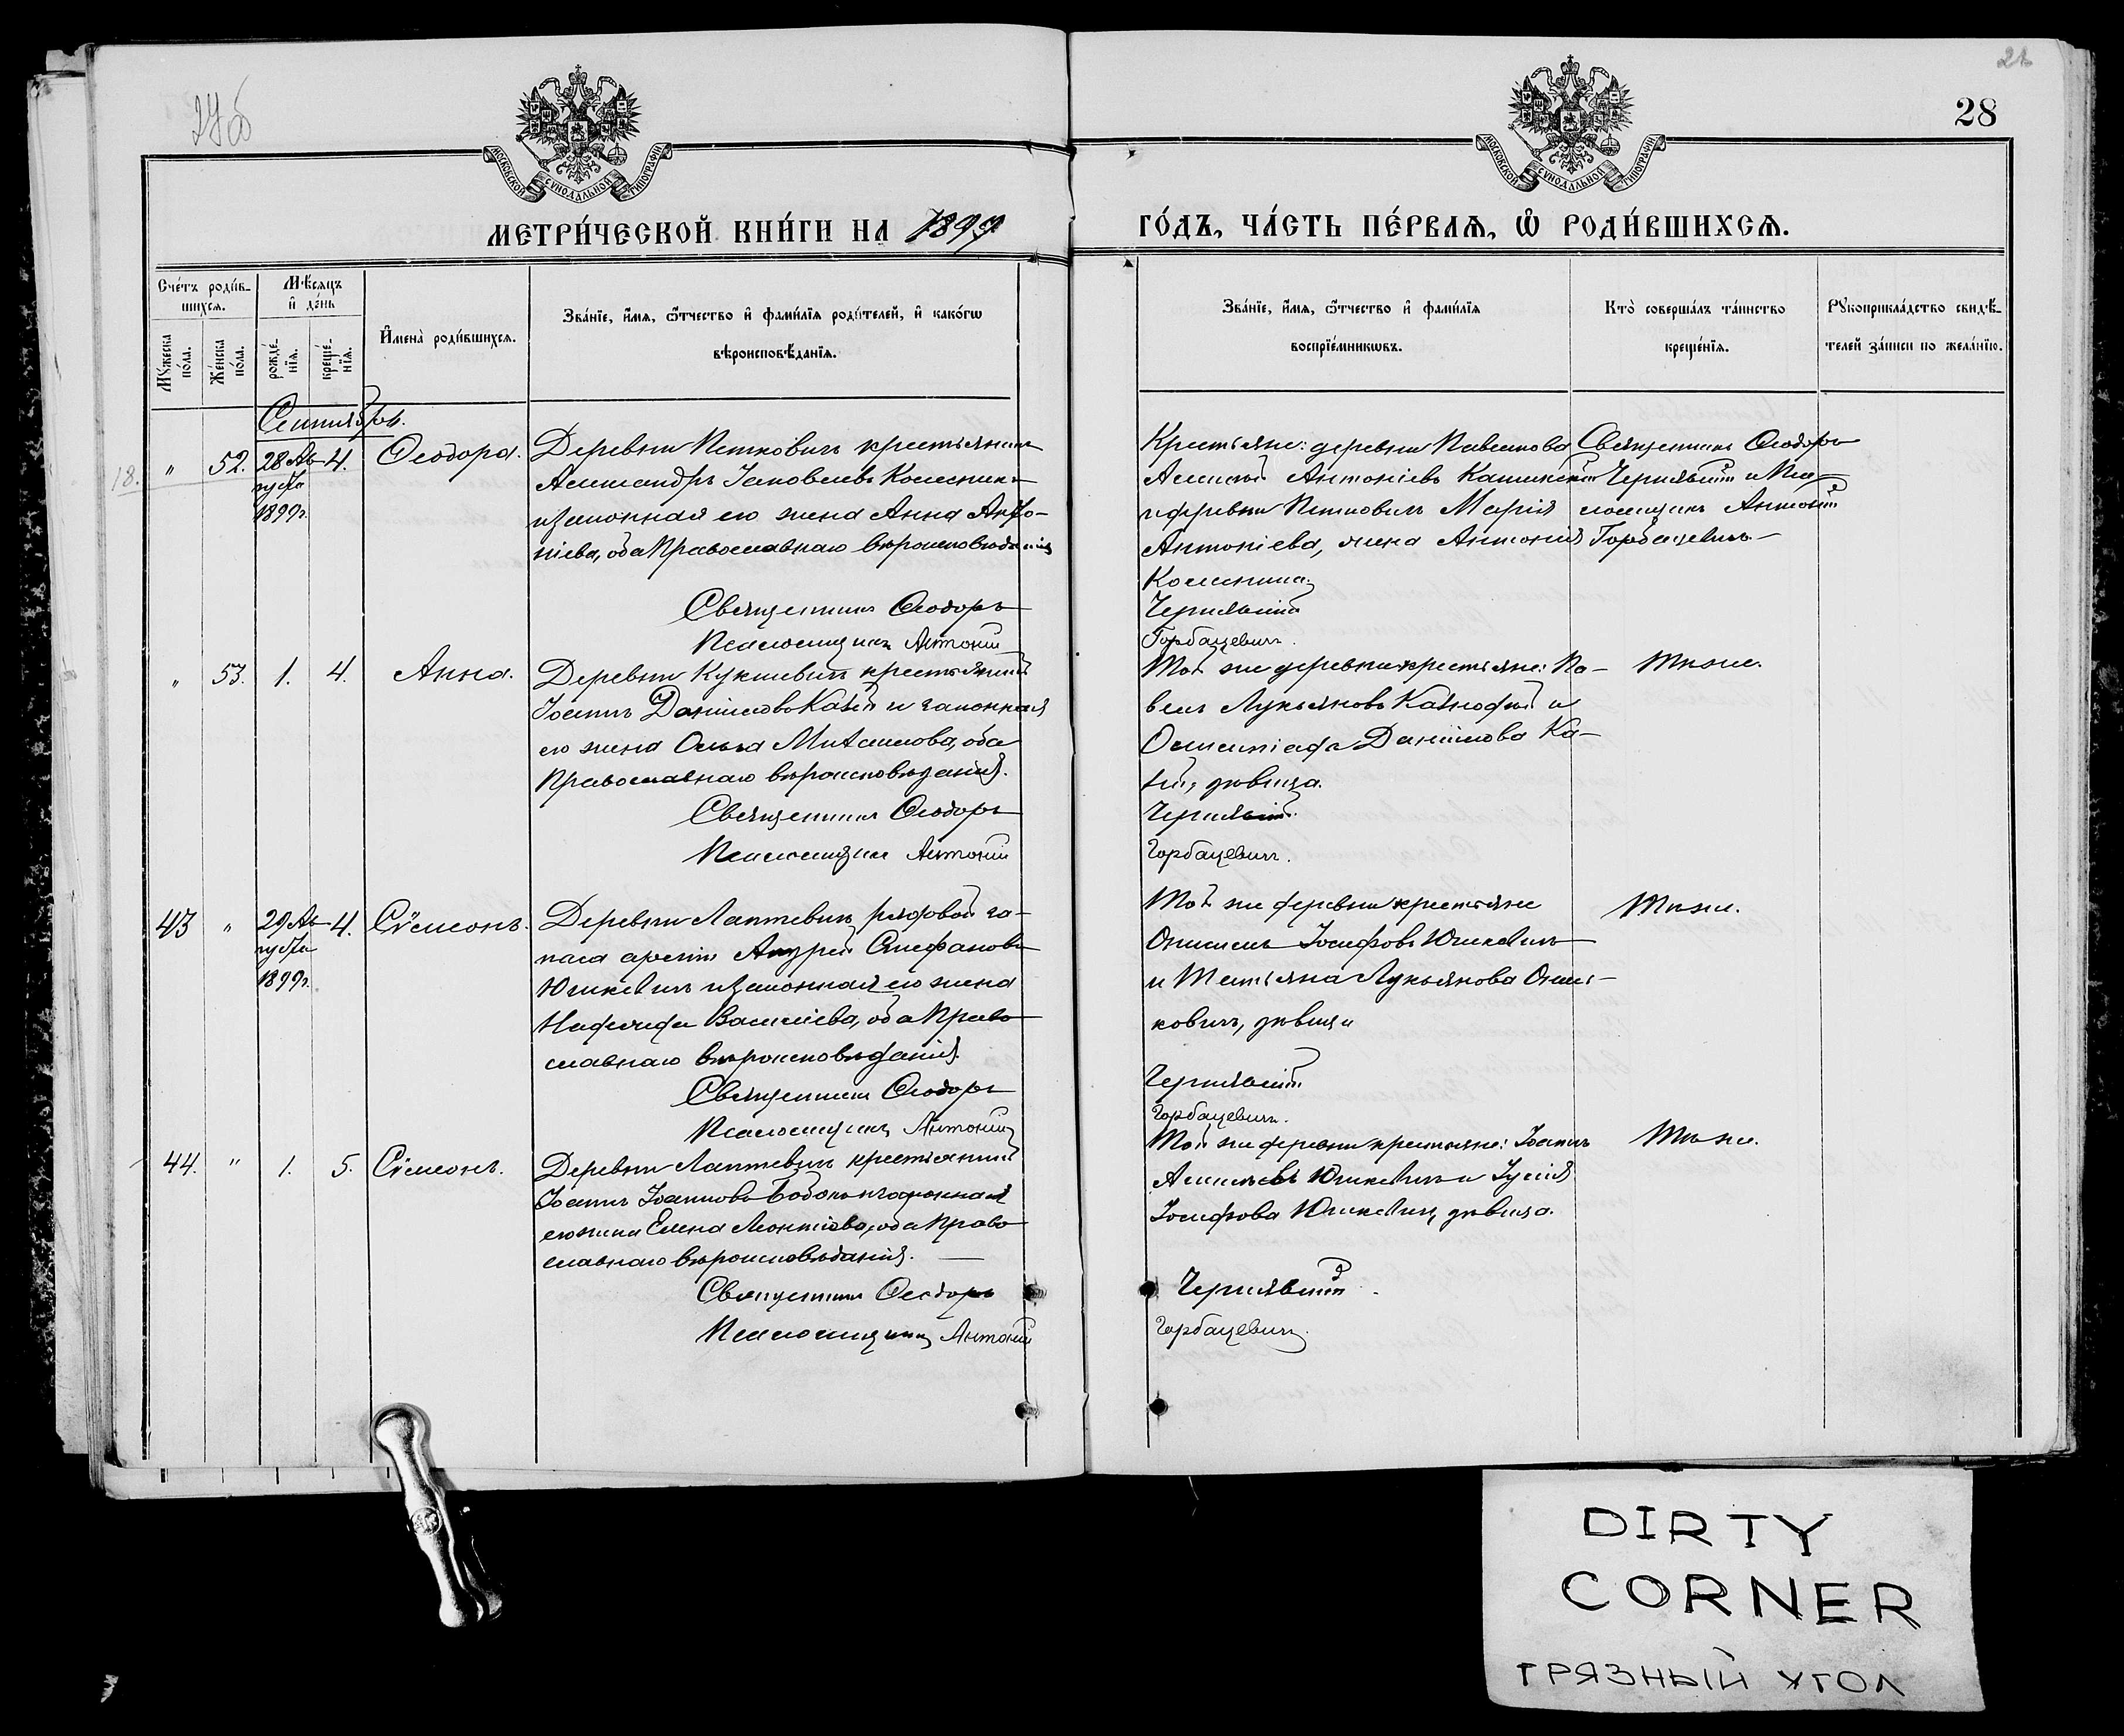 28
МОСКОВСКОЙ СѴНОДАЛЬНОЙ ТИПОГРАФІИ
МОСКОВСКОЙ СѴНОДАЛЬНОЙ ТИПОГРАФІИ
МЕТРИ́ЧЕСКОЙ КНИ́ГИ НА 1899
ГО́ДЪ, ЧА́СТЬ ПЕ́РВАѦ, Ѡ҆ РОДИ́ВШИХСѦ.
Сче́тъ роди́в-
шихсѧ.
Мꙋ́жеска по́ла.
Же́нска по́ла.
Мѣ́сяцъ
и҆ де́нь
рожде́-
нїѧ.
креще́-
нїѧ.
И҆мена̀ роди́вшихсѧ.
Зва́нїе, и҆́мѧ, ѻ҆́тчество и҆ фами́лїѧ роди́телей, и҆ како́гѡ
вѣроисповѣ́данїѧ.
Зва́нїе, и҆́мѧ, ѻ҆́тчество и҆ фами́лїѧ
воспрїе́мникѡвъ.
Кто̀ соверша́лъ та́инство
креще́нїѧ.
Рꙋкоприкла́дство свидѣ́-
телей за́писи по жела́нїю.
Сентябрь.
18.
" 52. 28 Ав-
густа
1899 г.
4. Ѳеодора.
Деревни Петковичъ крестьянинъ
Александръ Іаковлевъ Колесникъ
и законная его жена Анна Анто-
ніева, оба Православнаго вѣроисповѣданія
Священникъ Ѳеодоръ
Псаломщикъ Антоній
Крестьяне: деревни
Алексѣй Антоніевъ
и деревни Петковичъ Марія
Антоніева, жена Антонія
Колесника.
Чернявскій
Горбацевичъ.
Священникъ Ѳеодоръ
Чернявскій и Пса-
ломщикъ Антоній
Горбацевичъ
" 53. 1. 4. Анна.
Деревни Кукшевичъ крестьянинъ
Іоаннъ Даніиловъ и законная
его жена Ольга Михаилова, оба
Православнаго вѣроисповѣданія.
Священникъ Ѳеодоръ
Псаломщикъ Антоній
Той же деревни крестьяне: Па-
велъ Лукьяновъ и
Даніилова Ка-
дѣвица.
Чернявскій.
Горбацевичъ.
Тѣже.
43 " 29 Ав-
густа
1899 г.
4. Сѷмеонъ.
Деревни Лаптевичъ рядовой за-
паса арміи Андрей Стефановъ
Юшкевичъ и законная его жена
Надежда Василіева, оба Право-
славнаго вѣроисповѣданія.
Священникъ Ѳеодоръ
Псаломщикъ Антоній
Той же деревни крестьяне
Іосифовъ Юшкевичъ
и Татьяна Лукьянова
ковичъ, дѣвица
Чернявскій
Горбацевичъ.
Тѣже.
44. " 1. 5. Сѷмеонъ.
Деревни Лаптевичъ крестьянинъ
Іоаннъ Іоанновъ и законная
его жена Елена Леонтіева, оба Право-
славнаго вѣроисповѣданія.
Священникъ Ѳеодоръ
Псаломщикъ Антоній
Той же деревни крестьяне: Іоаннъ
Алексѣевъ Юшкевичъ и Іулія
Іосифова Юшкевичъ, дѣвица.
Чернявскій.
Горбацевичъ.
Тѣже.
DIRTY
CORNER
ГРЯЗНЫЙ УГОЛ